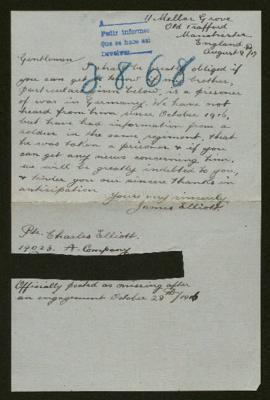 11 Mellor Grove
Old Trafford
Manchester
England
August 9/17
A
Pedir informes
Que se hace así
Devolver
Gentlemen
I shall be greatly obliged if
you can get to know if my brother,
particulars given below, is a prisoner
of war in Germany. We have not
heard from him since October 1916,
but have had information from a
soldier in the same regiment, that
he was taken a prisoner & if you
can get any news concerning him,
we will be greatly indebted to you,
& tender you our sincere thanks in
anticipation
Yours very sincerely
James Elliott.
2868
Pte. Charles Elliott.
19023. A Company
Officially posted as missing after
an engagement October 23rd/1916